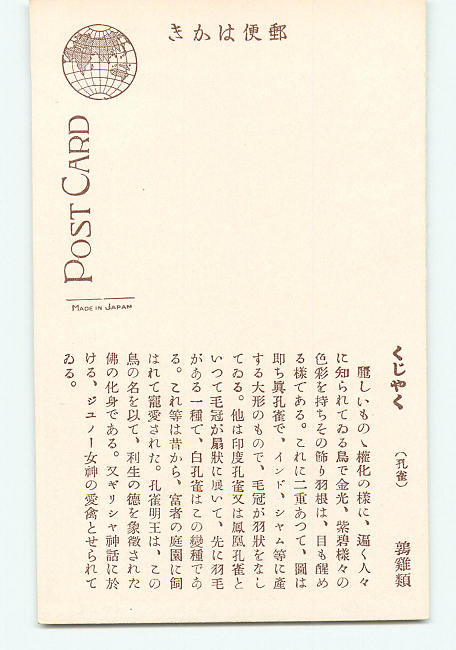 きかは便郵
POST CARD
MADE IN JAPAN
くじやく (孔雀) 鶉雞類
麗しいものゝ權化の樣に、逼く人々
に知られてゐる鳥で金光、紫碧樣々の
色彩を持ちその飾り羽根は、目も醒め
る樣である。これに二重あつて、圖は
即ち眞孔雀で、インド、シャム等に產
する大形のもので、毛冠が羽狀をなし
てゐる。他は印度孔雀又は鳳凰孔雀と
いつて毛冠が扇狀に展いて、先に羽毛
がある一種て、白孔雀はこの變種であ
る。これ等は昔から、富者の庭園に飼
はれて寵愛された。孔雀明王は、この
鳥の名を以て、利生の德を象徵された
佛の化身である。又ギリシャ神話に於
ける、ジユノー女神の愛禽とせられて
ゐる。